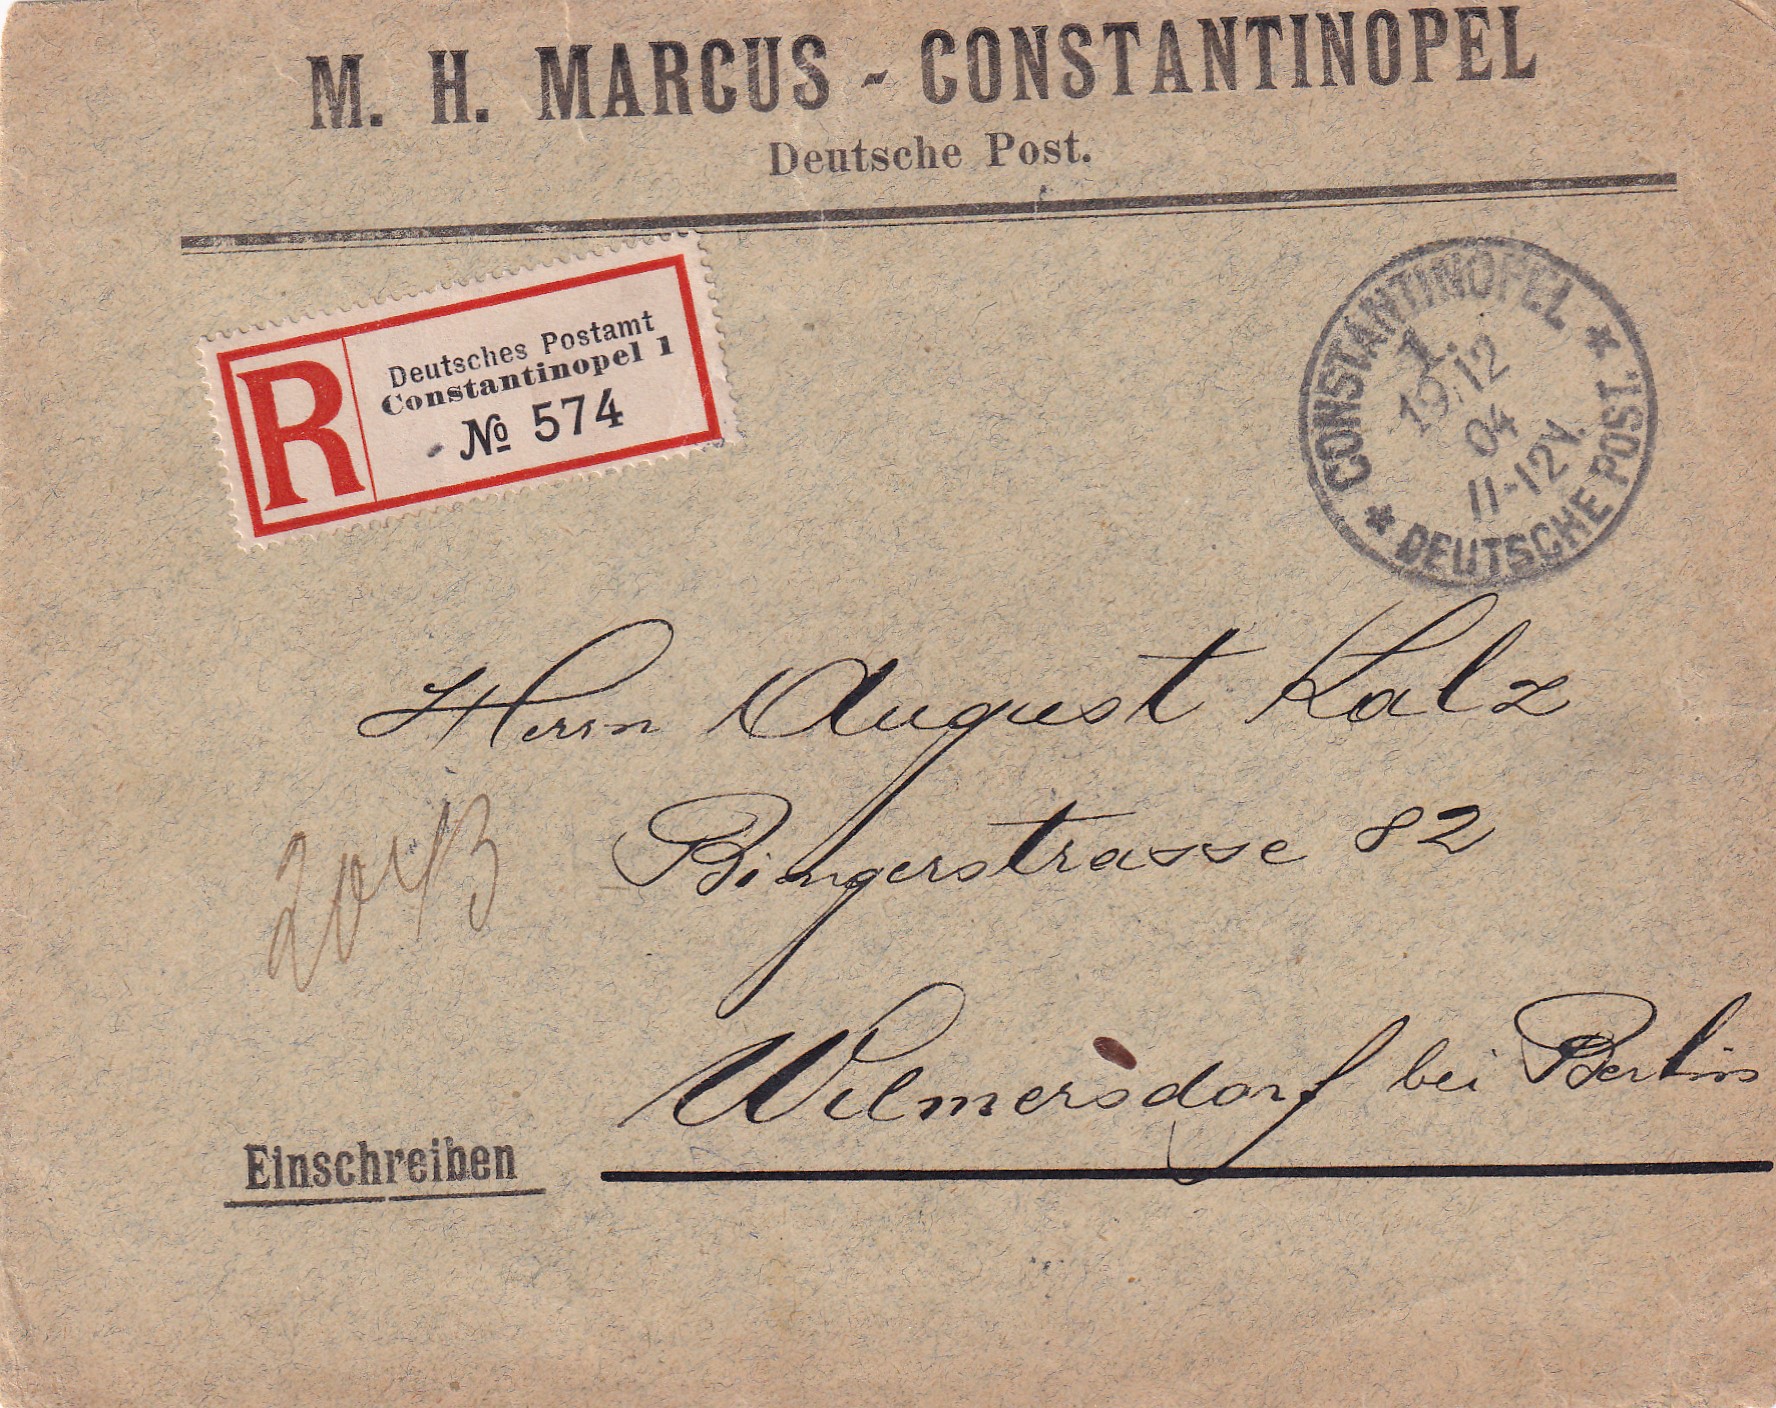 M. H. MARCUS - CONSTANTINOPEL
Deutsche Post.
R
Deutsches Postamt
Constantinopel 1
№ 574
CONSTANTINOPEL
1.
19.12
04
11-12V.
* DEUTSCHE POST. *
Herrn August Kalz
Bingerstrasse 82
Wilmersdorf bei Berlin
Einschreiben